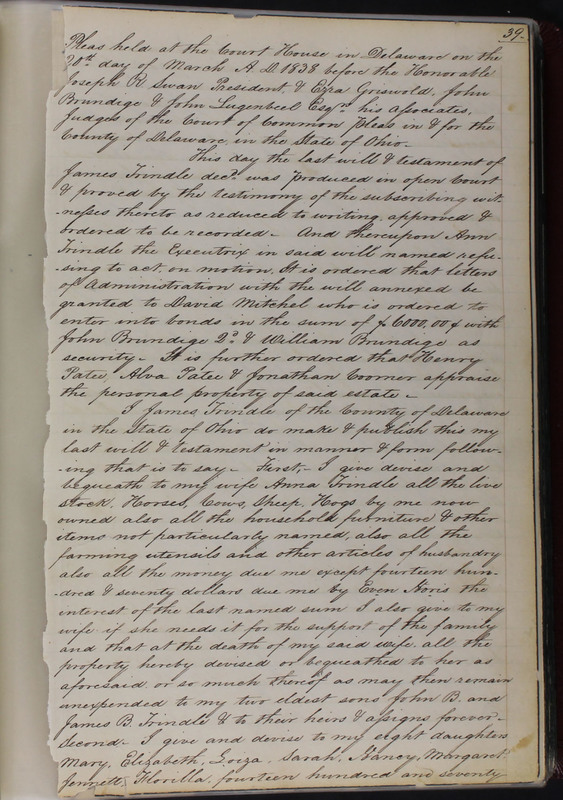 39.
Pleas held at the Court House in Delaware on the
20th day of March A. D. 1838 before the Honorable
Joseph R. Swan President & Ezra Griswold, John
Brundige & John Lugenbeel Esqrs. his associates,
Judges of the Court of Common Pleas in & for the
County of Delaware, in the State of Ohio—
This day the last will & testament of
James Trindle decd. was produced in open Court
& proved by the testimony of the subscribing wit-
-nesses thereto as reduced to writing, approved &
ordered to be recorded— And thereupon Ann
Trindle the Executrix in said will named refu-
-sing to act, on motion, It is ordered that letters
of Administration with the will annexed be
granted to David Mitchel who is ordered to
enter into bonds in the sum of $6000,00 with
John Brundige 2d. & William Brundige as
security— It is further ordered that Henry
Patee, Alva Patee & Jonathan Coomer appraise
the personal property of said estate—
I James Trindle of the County of Delaware
in the State of Ohio do make & publish this my
last will & testament in manner & form follow-
-ing that is to say— First— I give devise and
bequeath to my wife Anna Trindle all the live
stock, Horses, Cows, Sheep, Hogs by me now
owned also all the household furniture & other
items not particularly named, also all the
farming utensils and other articles of husbandry
also all the money due me except fourteen hun-
-dred & seventy dollars due me by Even the
interest of the last named sum I also give to my
wife if she needs it for the support of the family
and that at the death of my said wife, all the
property hereby devised or bequeathed to her as
aforesaid, or so much thereof as may then remain
unexpended to my two eldest sons John B. and
James B. Trindle & to their heirs & assigns forever—
Second— I give and devise to my eight daughters
Mary, Elizabeth, Sarah, Nancy, Margaret
Jennett, Florilla, fourteen hundred and seventy